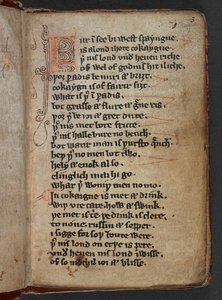 Fur in see bi west spayngne
is a lond ihote cokaygne
þer nis lond vnder heuen riche
of wel of godnis hit iliche
þoȝ paradis be miri & briȝt
cokaygn is of fairir siȝt
what is þer in paradis
bot grasse & flure & grene ris
þoȝ þer be ioi & grete dute
þer nis met bote frute
þer nis halle bure no bench
bot watir man is þursto quench
beþ þer no men bot two
hely & enok also
elinglich mai hi go
whar þer woniþ men no mo
In cokaigne is met & drink
wiþ vte care how & swink
þe met is trie þe drink is clere
to none russin & sopper
i sigge for soþ boute were
þer nis lond on erþe is pere
vnder heuen nis lond iwisse
of so mochil ioi & blisse